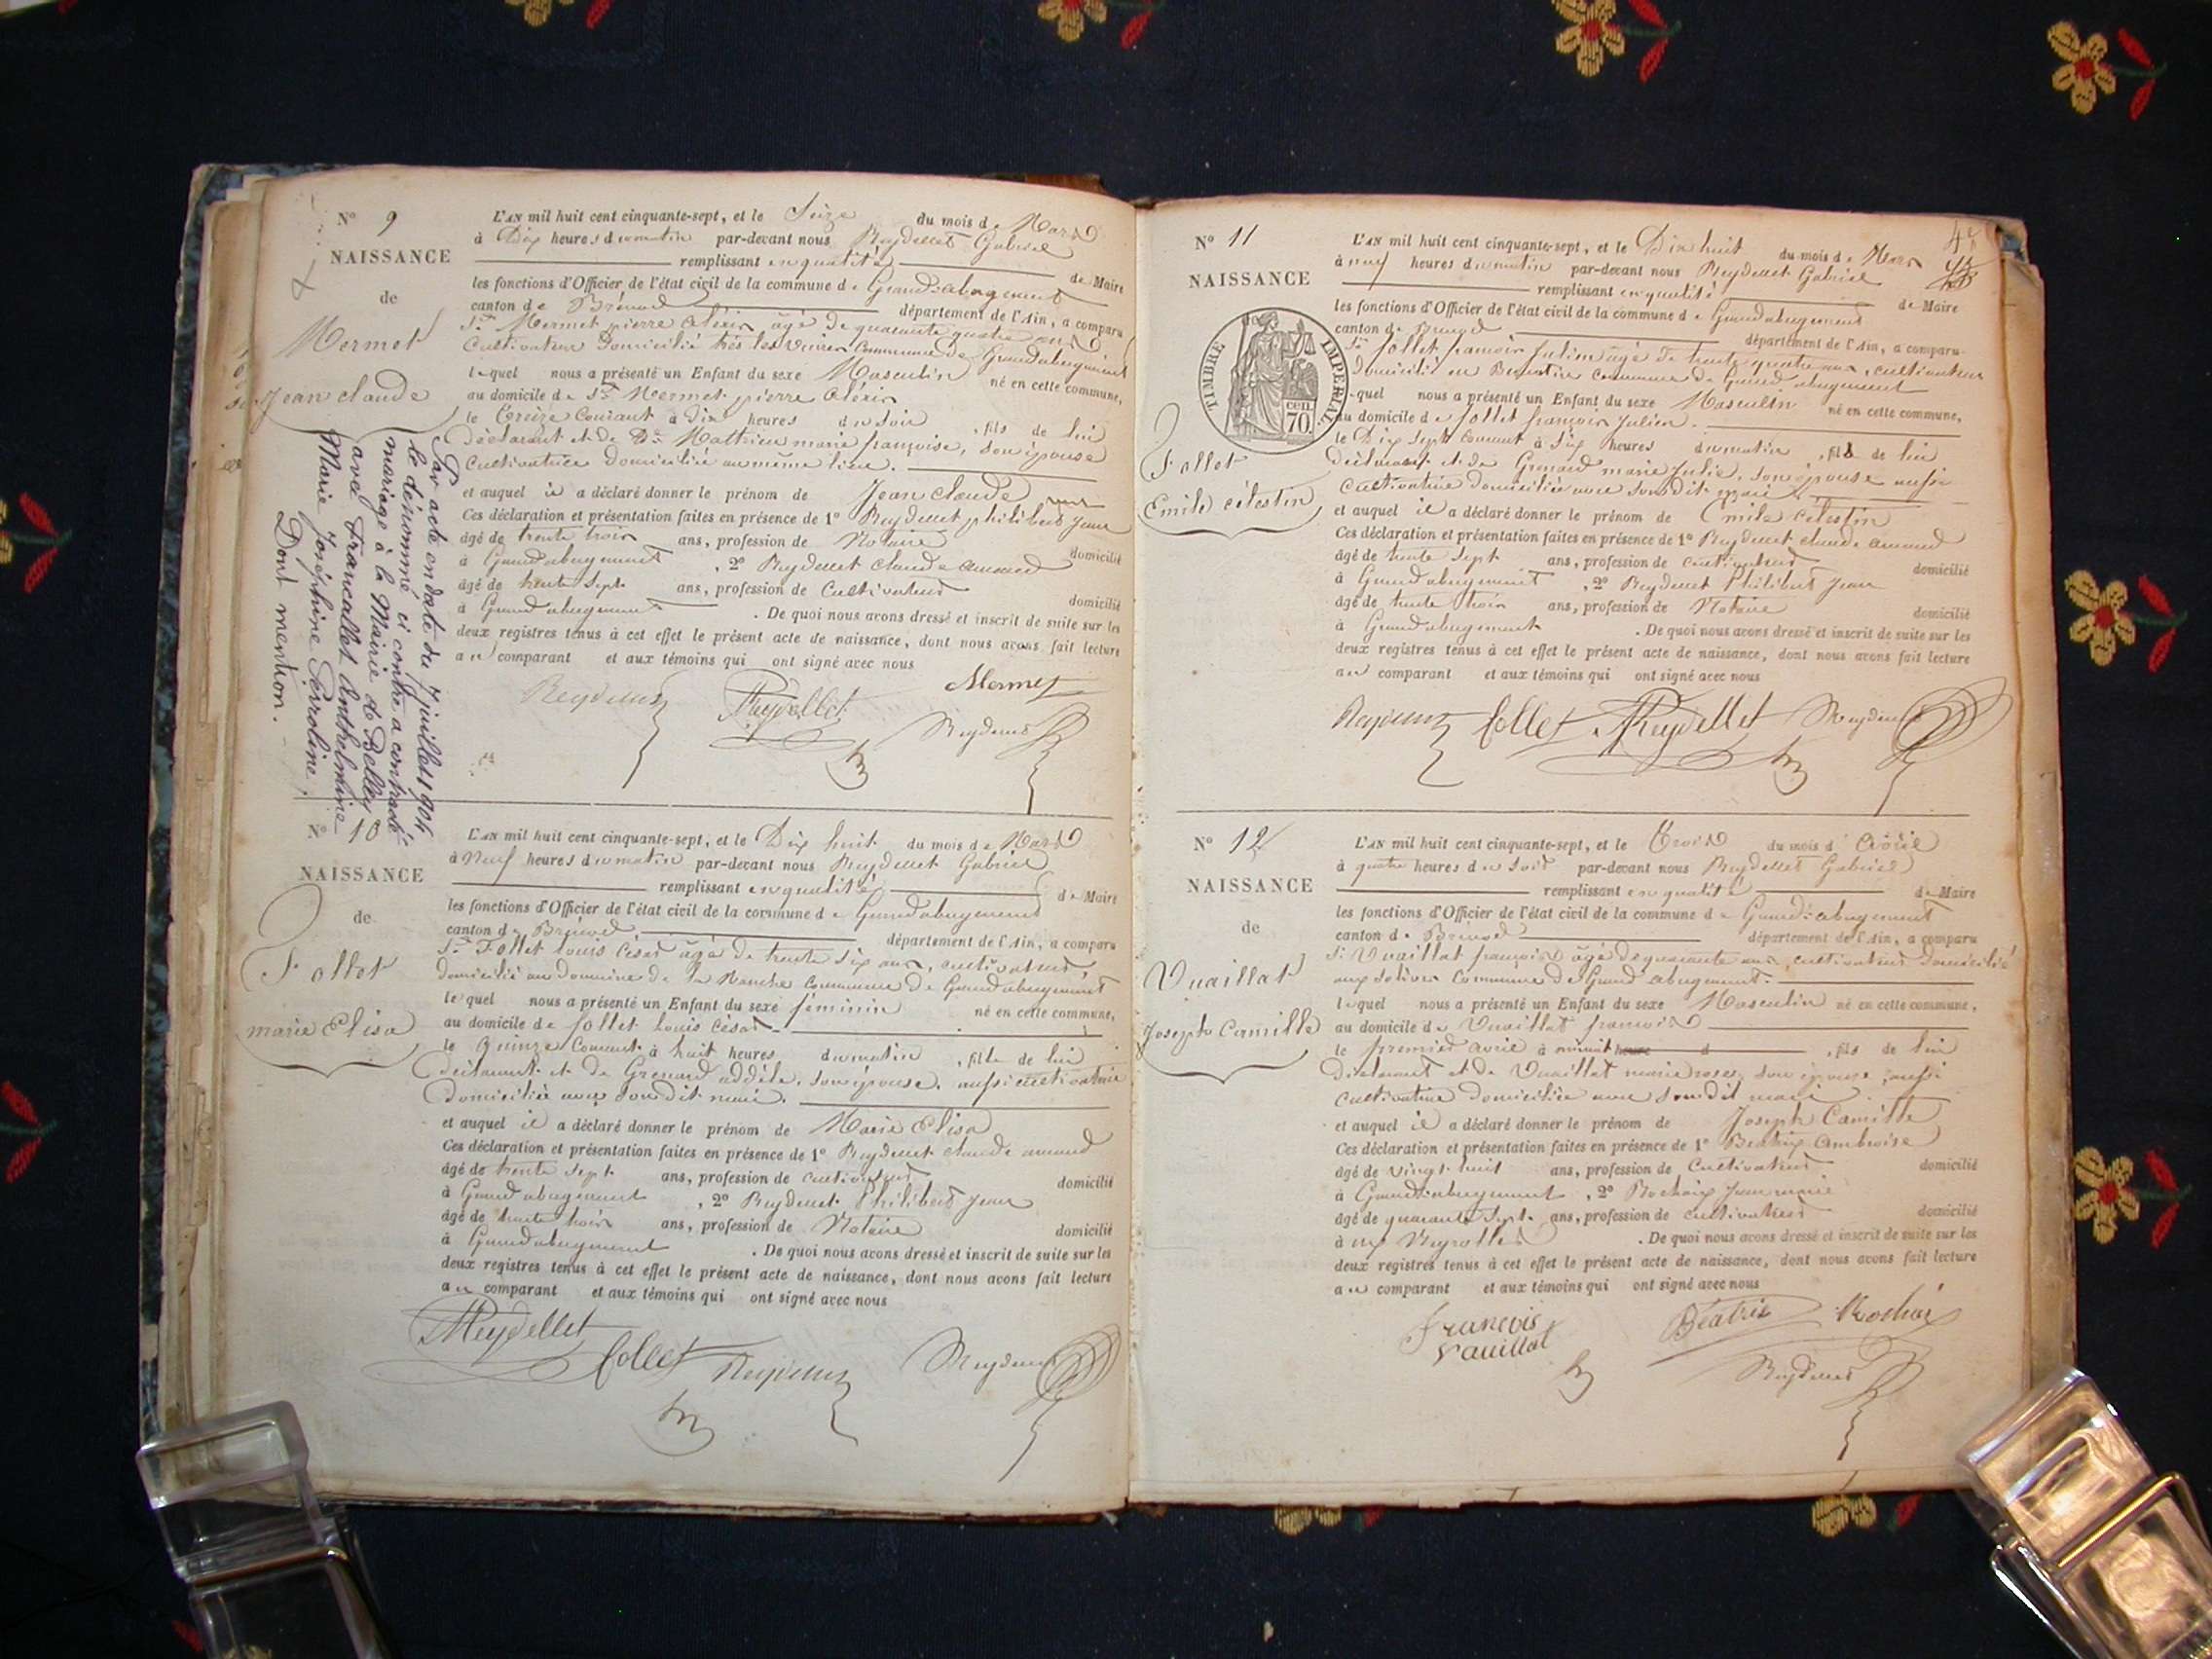 N° 9
NAISSANCE
de
Mermet
Jean claude
Par acte en date du 7 juillet 1904
le dénommé ci contre a contracté
mariage à la Mairie de Belley
avec Francallet Anthelmine
Marie Joséphine Perroline.
Dont mention.
L'AN mil huit cent cinquante-sept, et le Seize du mois de Mars
à Dix heures du matin par-devant nous Reydellet Gabriel
remplissant en qualité de Maire
les fonctions d'Officier de l'état civil de la commune de Grand abergement
canton de Brénod département de l'Ain, a comparu
Sr. Mermet pierre Aléxis âgé de quarante quatre ans
Cultivateur Domicilié commune de Grandabergement
lequel nous a présenté un Enfant du sexe Masculin né en cette commune,
au domicile de Sr. Mermet pierre Aléxis
le treize Courant à Dix heures du Soir , fils de lui
Déclarant et de De. Mathieu marie françoise, son épouse
Cultivatrice Domiciliée au même lieu.
et auquel il a déclaré donner le prénom de Jean claude
Ces déclaration et présentation faites en présence de 1° Reydellet philibert jean
âgé de trente trois ans, profession de Notaire domicilié
à Grandabergement , 2° Reydellet claude amand
âgé de trente Sept ans, profession de Cultivateur domicilié
à Grandabergement . De quoi nous avons dressé et inscrit de suite sur les
deux registres tenus à cet effet le présent acte de naissance, dont nous avons fait lecture
au comparant et aux témoins qui ont signé avec nous
Reydellet Reydellet Mermet
Reydellet
N° 10
NAISSANCE
de
Follet
marie Elisa
L'AN mil huit cent cinquante-sept, et le Dix huit du mois de Mars
à Neuf heures du matin par-devant nous Reydellet Gabriel
remplissant en qualité de Maire
les fonctions d'Officier de l'état civil de la commune de Grandabergement
canton de Brénod département de l'Ain, a comparu
Sr. Follet Louis César âgé de trente Six ans, cultivateur,
domicilié au domaine de la Manche Commune de Grandabergement
lequel nous a présenté un Enfant du sexe féminin né en cette commune,
au domicile de follet Louis César
le quinze Courant à huit heures du matin , fille de lui
Déclarant et de Grenard addèle, son épouse, aussi cultivatrice
Domiciliée avec Son Dit mari.
et auquel il a déclaré donner le prénom de Marie Elisa
Ces déclaration et présentation faites en présence de 1° Reydellet claude amand
âgé de trente Sept ans, profession de cultivateur domicilié
à Grandabergement , 2° Reydellet Philibert Jean
âgé de trente trois ans, profession de Notaire domicilié
à Grandabergement . De quoi nous avons dressé et inscrit de suite sur les
deux registres tenus à cet effet le présent acte de naissance, dont nous avons fait lecture
au comparant et aux témoins qui ont signé avec nous
Reydellet follet Reydellet Reydellet
N° 11
NAISSANCE
TIMBRE IMPERIAL
cen. 70.
Follet
Emile célestin
L'AN mil huit cent cinquante-sept, et le Dix huit du mois de Mars
à neuf heures du matin par-devant nous Reydellet Gabriel
remplissant en qualité de Maire
les fonctions d'Officier de l'état civil de la commune de Grandabergement
canton de Brenod département de l'Ain, a comparu
Sr. follet françois Julien âgé de trente quatre ans, cultivateur
Domicilié en commune de Grand abergement
quel nous a présenté un Enfant du sexe Masculin né en cette commune,
au domicile de follet françois Julien.
le Dix Sept Courant à Six heures du matin , fils de lui
Déclarant et de Grenard marie Julie, son épouse aussi
Cultivatrice domiciliée avec Son dit mari
et auquel il a déclaré donner le prénom de Emile Célestin
Ces déclaration et présentation faites en présence de 1° Reydellet claude amand
âgé de trente Sept ans, profession de cultivateur domicilié
à Grandabergement , 2° Reydellet Philibert Jean
âgé de trente trois ans, profession de Notaire domicilié
à Grandabergement . De quoi nous avons dressé et inscrit de suite sur les
deux registres tenus à cet effet le présent acte de naissance, dont nous avons fait lecture
au comparant et aux témoins qui ont signé avec nous
Reydellet follet Reydellet Reydellet
N° 12
NAISSANCE
de
Vuaillat
Joseph Camille
L'AN mil huit cent cinquante-sept, et le Trois du mois d'Avril
à quatre heures du Soir par-devant nous Reydellet Gabriel
remplissant en qualité de Maire
les fonctions d'Officier de l'état civil de la commune de Grand abergement
canton de Brénod département de l'Ain, a comparu
Sr. Vuaillat françois âgé de quarante ans, cultivateur domicilié
aux Solives Commune de Grand abergement.
lequel nous a présenté un Enfant du sexe Masculin né en cette commune,
au domicile de Vuaillat françois
le premier avril à minuit heures d , fils de lui
Déclarant et de Vuaillat marie rose, son épouse, aussi
cultivatrice domiciliée avec Son dit mari
et auquel il a déclaré donner le prénom de Joseph Camille
Ces déclaration et présentation faites en présence de 1° Béatrix Ambroise
âgé de vingt huit ans, profession de Cultivateur domicilié
à Grandabergement , 2° Rochaix Jean marie
âgé de quarante Sept ans, profession de cultivateur domicilié
à . De quoi nous avons dressé et inscrit de suite sur les
deux registres tenus à cet effet le présent acte de naissance, dont nous avons fait lecture
au comparant et aux témoins qui ont signé avec nous
François Vauillat Béatrix Rochaix
Reydellet